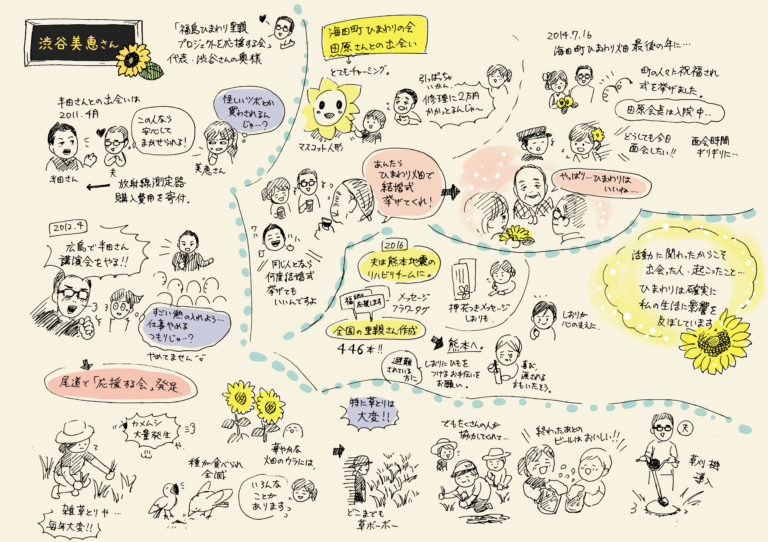 渋谷美恵さん
「福島ひまわり里親
プロジェクトを応援する会」
代表・渋谷さんの奥様
半田さんとの出会いは
2011.4月
この人なら
安心して
まかせられる!
怪しいツボとか
買わされるん
じゃ…?
半田さん
夫
美恵さん
放射線測定器
購入費用を寄付。
2012.4
広島で半田さん
講演会をやる!!
すごい熱の入れよう…
仕事やめる
つもりじゃ…?
やめてません
尾道で「応援する会」発足
海田町ひまわりの会
田原さんとの出会い
とてもチャーミング。
マスコット人形
引っぱっちゃ
いかん、
修理に2万円
かかってるんじゃ〜
あんたら
ひまわり畑で
結婚式
挙げてくれ!
同じ人となら
何度結婚式
挙げても
いいんですよ
2014.7.16
海田町ひまわり畑 最後の年に…
町の人々に祝福され
式を挙げました。
田原会長は入院中…
どうしても今日
面会したい!!
面会時間
ギリギリに…
やっぱり…ひまわりは
いいね…
2016
夫は熊本地震の
リハビリチームに。
福島から
応援します
メッセージ
フラワータグ
全国の里親さん作成
446本!!
押花つきメッセージ
しおりも。
熊本へ。
避難
されている
方に
しおりにひもを
つけるお手伝いを
お願い。
喜び、
涙される
方もいたそう。
しおりが
心の支えに。
活動に関わったからこそ
出会った人・起こったこと…
ひまわりは確実に
私の生活に影響を
及ぼしています
カメムシ
大量発生
雑草とりや…
毎年大変!!
種が食べられ
全滅
華やかな
畑のウラには
いろんな
ことが
あります
特に草とりは
大変!!
どこまでも
草ボーボー
でもたくさんの人が
協力してくれて…
終わったあとの
ビールはおいしい!!
夫
草刈機
導入